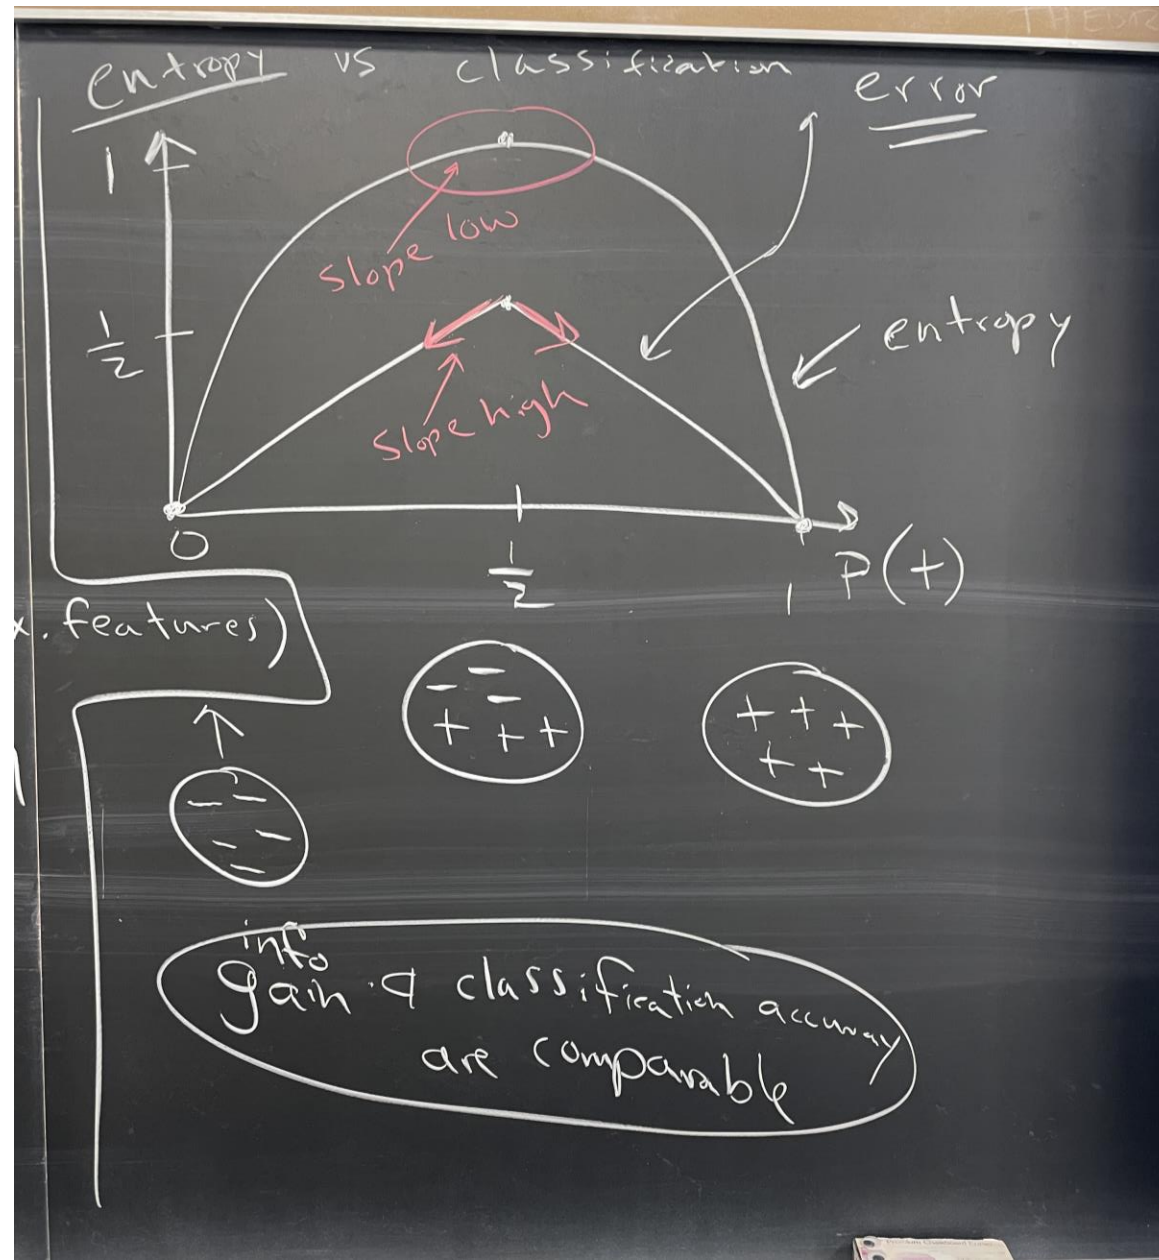 entropy vs classification error
1
slope low
1/2
entropy
slope high
0
1/2
1
P(+)
. features)
- - -
+ + +
+ + +
+ +
- -
- -
-
info
gain & classification accuracy
are comparable